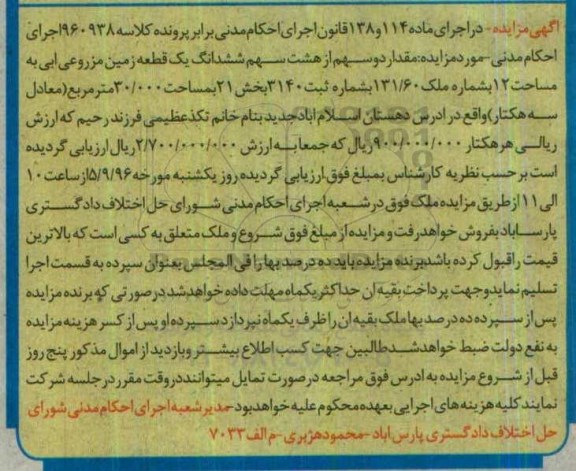 آگهی مزایده- در اجرای ماده ۱۱۴ و ۱۳۸ قانون اجرای احکام مدنی برابر پرونده کلاسه ۹۶۰۹۳۸ اجرای
احکام مدنی-مورد مزایده:مقدار دو سهم از هشت سهم ششدانگ یک قطعه زمین مزروعی ابی به
مساحت ۱۲ بشماره ملک ۱۳۱/۶۰ بشماره ثبت ۳۱۴۰ بخش ۲۱ بمساحت ۳۰/۰۰۰ مترمربع(معادل
سه هکتار)واقع در ادرس دهستان اسلام اباد جدید بنام خانم تکذعظیمی فرزند رحیم که ارزش
ریالی هر هکتار ۹۰۰/۰۰۰/۰۰۰ ریال که جمعا به ارزش ۲/۷۰۰/۰۰۰/۰۰۰ ریال ارزیابی گردیده
است بر حسب نظریه کارشناس بمبلغ فوق ارزیابی گردیده روز یکشنبه مورخه ۵/۹/۹۶ از ساعت ۱۰
الی ۱۱ از طریق مزایده ملک فوق در شعبه اجرای احکام مدنی شورای حل اختلاف دادگستری
پارساباد بفروش خواهد رفت و مزایده از مبلغ فوق شروع و ملک متعلق به کسی است که بالاترین
قیمت را قبول کرده باشد برنده مزایده باید ده درصد بها را فی المجلس بعنوان سپرده به قسمت اجرا
تسلیم نماید و جهت پرداخت بقیه ان حداکثر یکماه مهلت داده خواهد شد در صورتی که برنده مزایده
پس از سپرده ده درصد بها ملک بقیه ان را ظرف یکماه نپردازد سپرده او پس از کسر هزینه مزایده
به نفع دولت ضبط خواهد شد طالبین جهت کسب اطلاع بیشتر و بازدید از اموال مذکور پنج روز
قبل از شروع مزایده به ادرس فوق مراجعه در صورت تمایل میتوانند در وقت مقرر در جلسه شرکت
نمایند کلیه هزینه های اجرایی بعهده محکوم علیه خواهد بود-مدیر شعبه اجرای احکام مدنی شورای
حل اختلاف دادگستری پارس اباد -محمود هژبری -م الف ۷۰۳۳